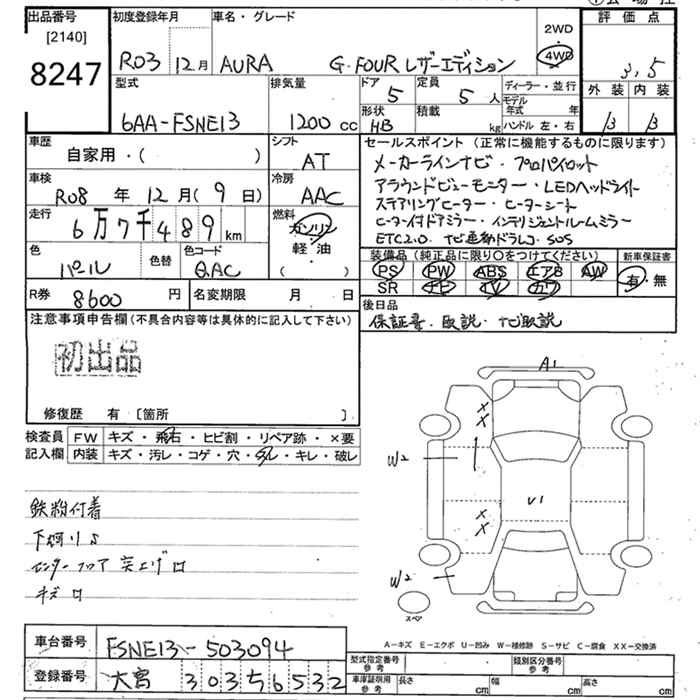 出品番号 初度登録年月 車名・グレード 2WD 評価点
[2140] 4WD
8247 R03 12月 AURA G・FOUR レザーエディション 3.5
型式 排気量 ドア 5 定員 5人 ディーラー・並行 外装 内装
6AA-FSNE13 1200cc 形状 HB 積載 kg モデル年式 年 B B
ハンドル 左・右
車歴 シフト セールスポイント(正常に機能するものに限ります)
自家用・( ) AT メーカーラインナビ・プロパイロット
車検 冷房 アラウンドビューモニター・LEDヘッドライト
R08年 12月(9日) AAC ステアリングヒーター・ヒーターシート
走行 燃料 ヒーター付ドアミラー・インテリジェントルームミラー
6万7千489km ガソリン ETC2.0・ナビ連動ドラレコ・SOS
軽・油
( )
色 色替 色コード 装備品(純正品に限り○をつけてください) 新車保証書
パール QAC PS PW ABS エアB AW 有・無
SR ナビ TV カワ
R券 8600円 名変期限 月 日 後日品
保証書・取説・ナビ取説
注意事項申告欄(不具合内容等は具体的に記入して下さい)
初出品
修復歴 有 〔箇所 〕
検査員 FW キズ・飛石・ヒビ割・リペア跡・×要
記入欄 内装 キズ・汚レ・コゲ・穴・スレ・キレ・破レ
A1
XX
W2
U1
XX
W2
スペア
鉄粉付着
下廻りS
センターフロア突上げ
キズ
A-キズ E-エクボ U-凹み W-補修跡 S-サビ C-腐食 XX-交換済
車台番号 FSNE13-503094 型式指定番号 参考 類別区分番号 参考
登録番号 大宮 303 す 6532 車庫証明用 参考 長さ cm 幅 cm 高さ cm